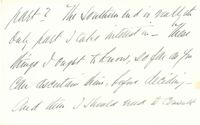 part? The Southern end is really the
only part I care interest in — These
things I ought to know, so far as you
can ascertain them, before deciding.
And then I should need to consult